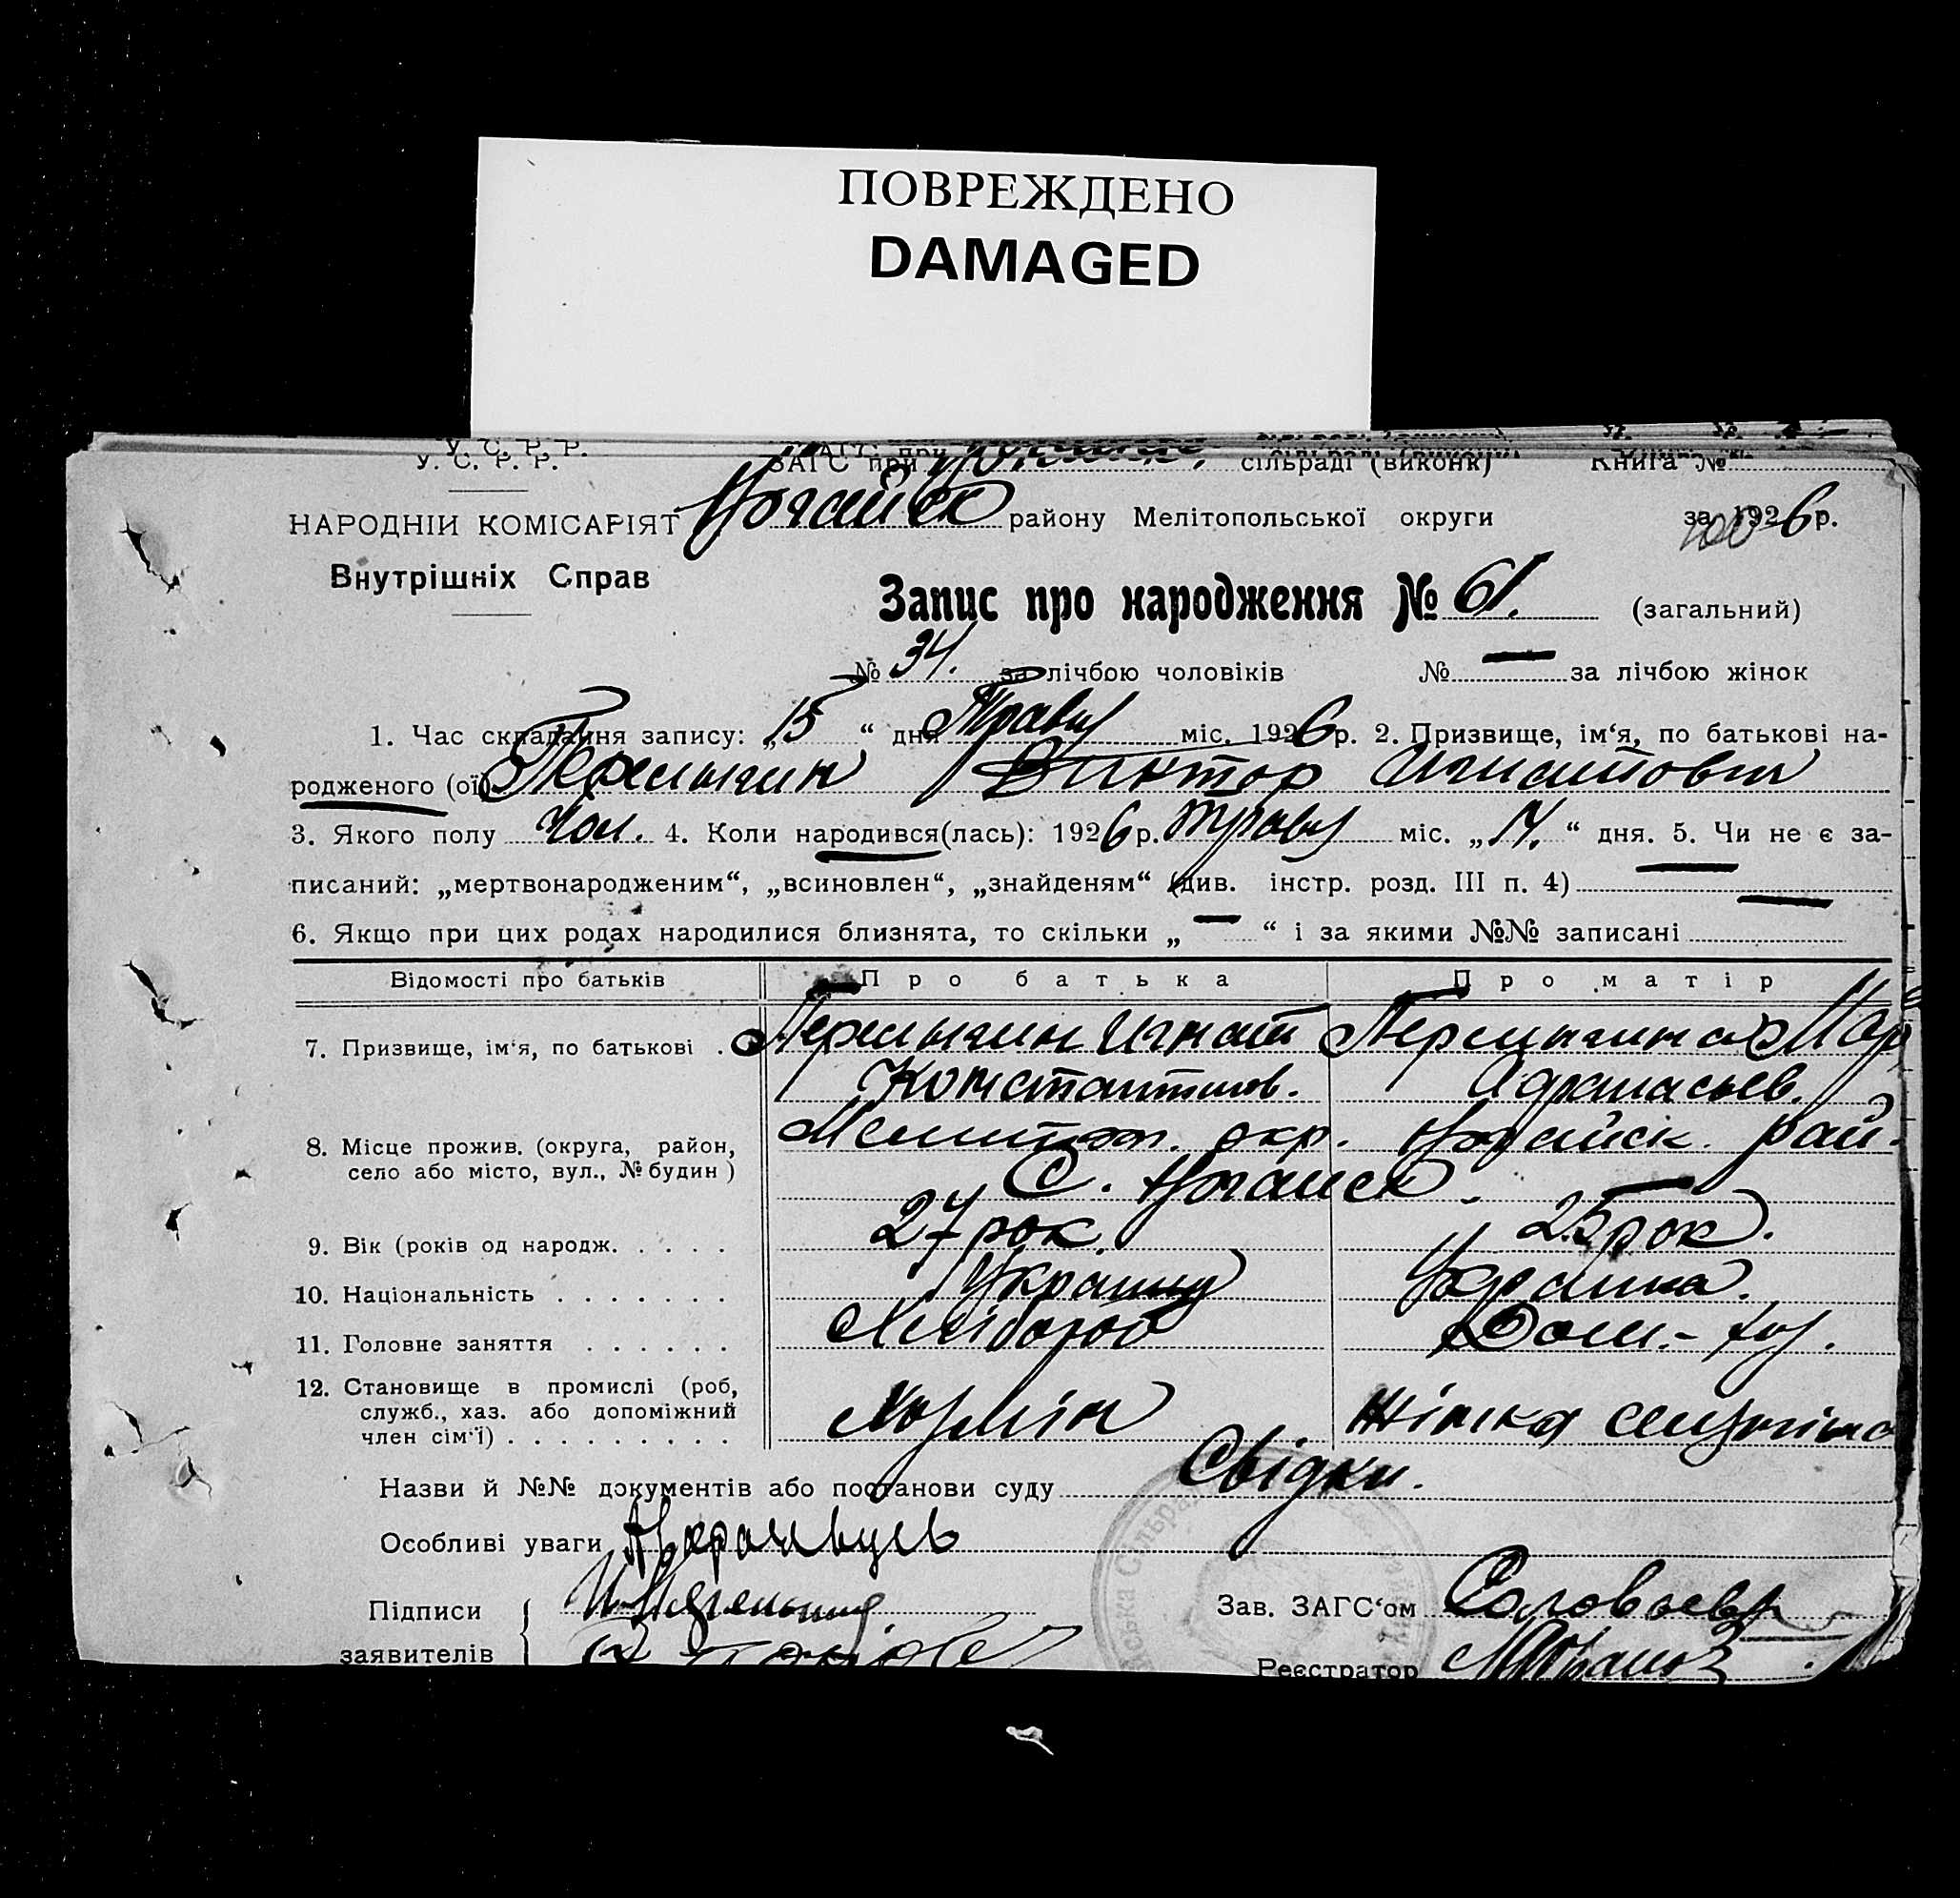 ПОВРЕЖДЕНО
DAMAGED
У. С. Р. Р.
ЗАГС при сільраді (виконк) Книга №
НАРОДНІЙ КОМІСАРІЯТ Ногайск району Мелітопольської округи за 1926 р.
Внутрішніх Справ
Запис про народження № 61. (загальний)
№ 34. за лічбою чоловіків № — за лічбою жінок
1. Час складання запису: „15“ дня Травня міс. 1926 р. 2. Призвище, ім‘я, по батькові на-
родженого (ої) Виктор Игнатович
3. Якого полу Чол. 4. Коли народився(лась): 1926 р. Травня міс. „14.“ дня. 5. Чи не є за-
писаний: „мертвонародженим“, „всиновлен“, „знайденям“ (див. інстр. розд. III п. 4) —
6. Якщо при цих родах народилися близнята, то скільки „—“ і за якими №№ записані
Відомості про батьків Про батька Про матір
7. Призвище, ім‘я, по батькові . Игнат
Константинов.
8. Місце прожив. (округа, район, Мелитоп. окр. Ногайск. рай.
село або місто, вул., № будин ) С. Ногайск.
9. Вік (років од народж. . . . . 27 рок. 25 рок.
10. Національність . . . . . . . Украинец Украинка.
11. Головне заняття . . . . . . Хлібороб Дом.-хоз.
12. Становище в промислі (роб,
служб., хаз. або допоміжний Хазяін Жінка
член сім‘ї) . . . . . . . . .
Назви й №№ документів або постанови суду Свідки.
Особливі уваги
Підписи Зав. ЗАГС‘ом Соловьев
заявителів Реєстратор